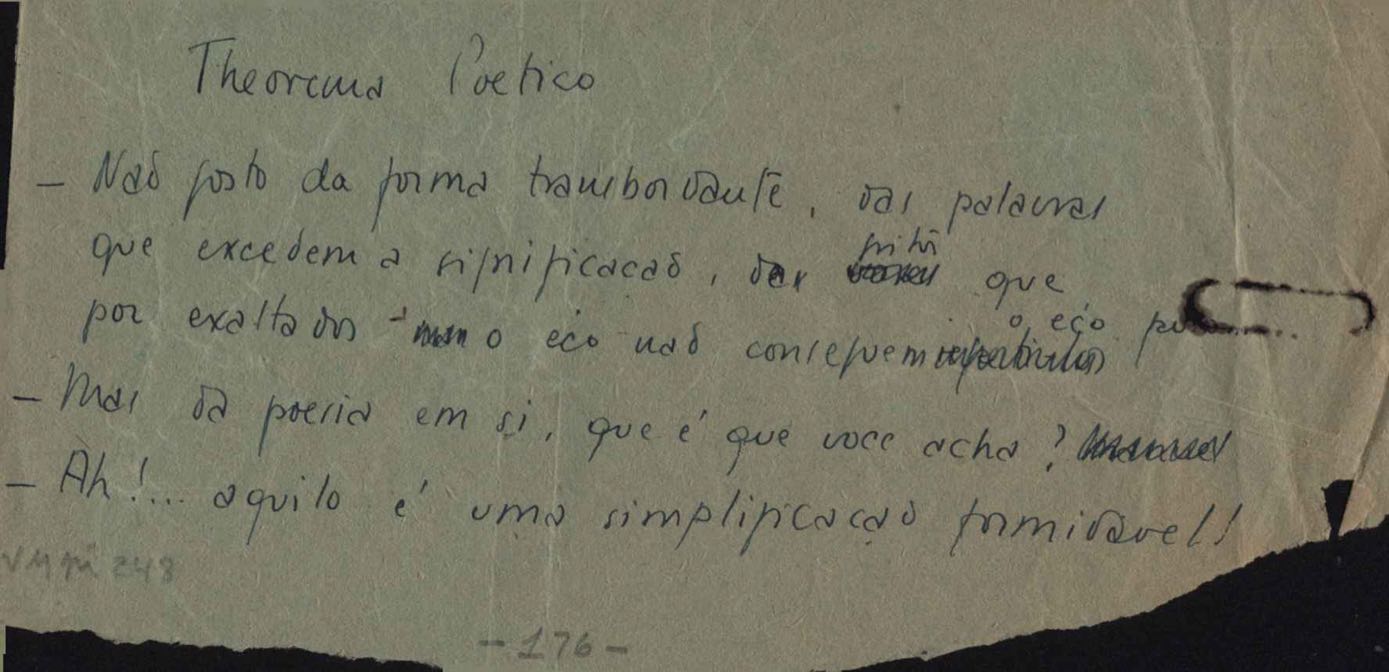 Theorema Poetico
- Não gosto da forma transbordante, das palavras
que excedem a significação, dos que
por exaltados o éco não conseguem o éco
- Mas da poesia em si, que é que voce acha?
- Ah!... aquilo é uma simplificação formidavel!
248
- 176 -